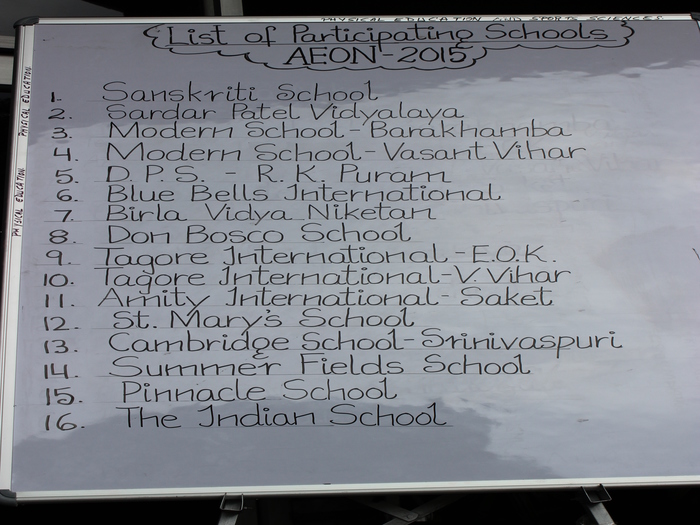 PHYSICAL EDUCATION AND SPORTS SCIENCES
PHYSICAL EDUCATION
PHYSICAL EDUCATION
List of Participating Schools
AEON-2015
1. Sanskriti School
2. Sardar Patel Vidyalaya
3. Modern School-Barakhamba
4. Modern School-Vasant Vihar
5. D.P.S. - R.K. Puram
6. Blue Bells International
7. Birla Vidya Niketan
8. Don Bosco School
9. Tagore International-E.O.K.
10. Tagore International-V.Vihar
11. Amity International-Saket
12. St. Mary's School
13. Cambridge School-Srinivaspuri
14. Summer Fields School
15. Pinnacle School
16. The Indian School